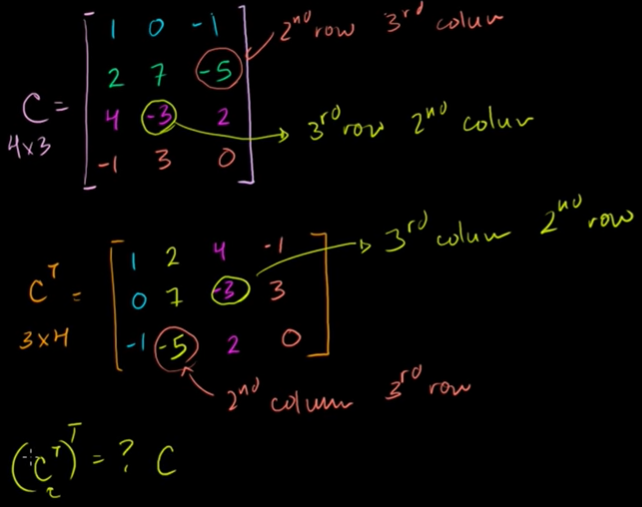 1 0 -1 2nd row 3rd colum
2 7 -5
C = 4 -3 2 3rd row 2nd colum
4x3
-1 3 0
1 2 4 -1 3rd colum 2nd row
C^T = 0 7 -3 3
3x4
-1 -5 2 0
2nd colum 3rd row
(C^T)^T = ? C